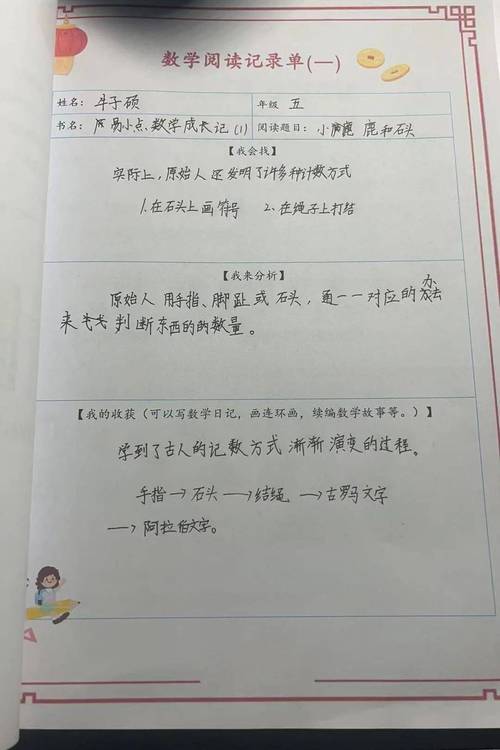 数学阅读记录单(一)
姓名：牛子硕 年级 五
书名：周易小点数学成长记(1) 阅读题目：小 鹿和石头
【我会找】
实际上，原始人还发明了许多种计数方式
1.在石头上画符号 2.在绳子上打结
【我来分析】
原始人用手指、脚趾或石头，通一一对应的办法
来 判断东西的的数量。
【我的收获（可以写数学日记，画连环画，续编数学故事等。）】
学到了古人的记数方式渐渐演变的过程。
手指→石头→结绳→古罗马文字
→阿拉伯文字。